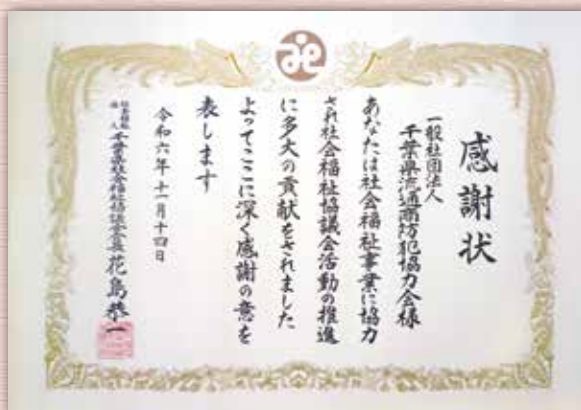 感謝状
一般社団法人
千葉県流通商防犯協力会様
あなたは社会福祉事業に協力
され社会福祉協議会活動の推進
に多大の貢献をされました
よってここに深く感謝の意を
表します
令和六年十一月十四日
社会福祉
法人
千葉県社会福祉協議会会長 花島恭一